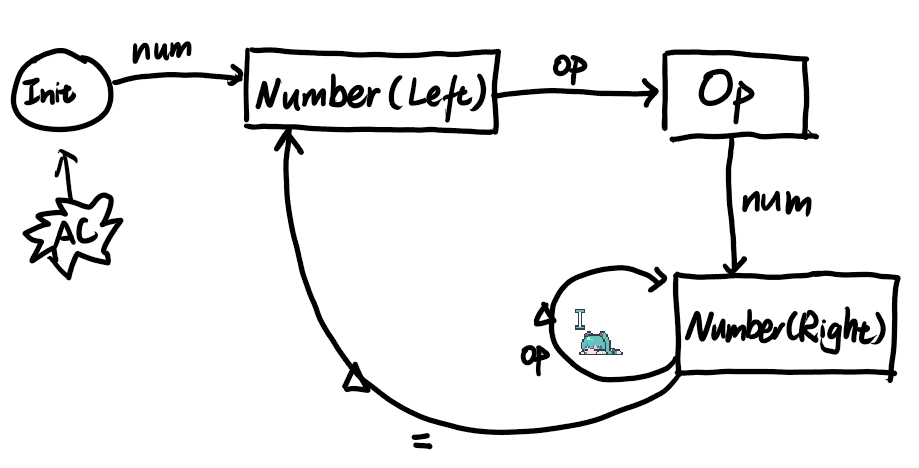 num
Init
Number (Left)
op
Op
AC
num
Number(Right)
op
=